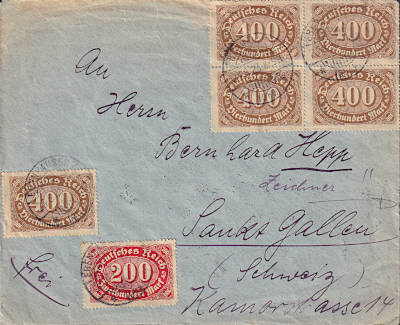 Deutsches Reich
400
Vierhundert Mark
Deutsches Reich
400
Vierhundert Mark
Deutsches Reich
400
Vierhundert Mark
Deutsches Reich
400
Vierhundert Mark
An
Herrn
Bernhard Hepp
Zeichner
Sankt Gallen
(Schweiz)
Kamorstrasse 14
Deutsches Reich
400
Vierhundert Mark
Deutsches Reich
200
Zweihundert Mark
frei